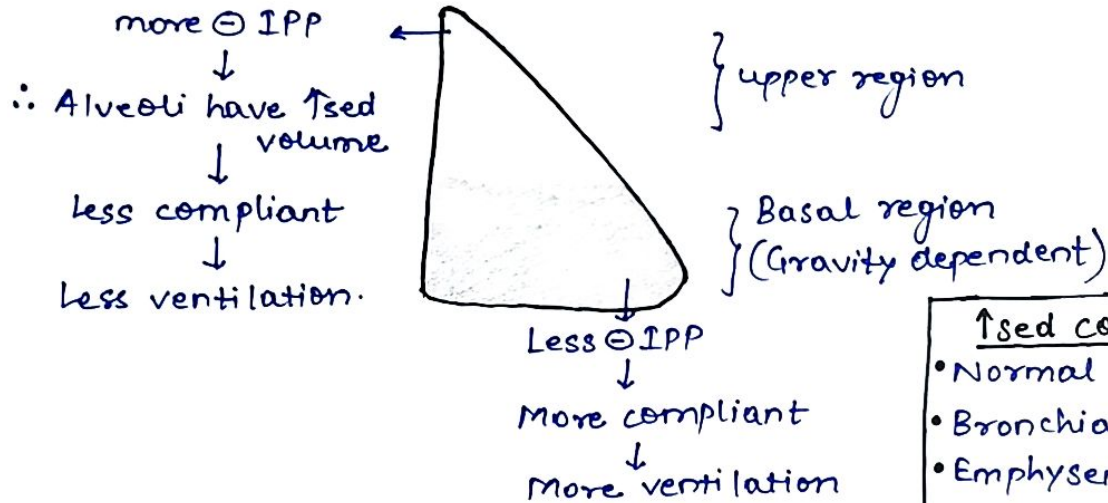 more ⊖ IPP
↓
∴ Alveoli have ↑sed
volume
↓
Less compliant
↓
Less ventilation.
←
} upper region
} Basal region
(Gravity dependent)
↓
Less ⊖ IPP
↓
More compliant
↓
More ventilation
↑sed
• Normal
•
•